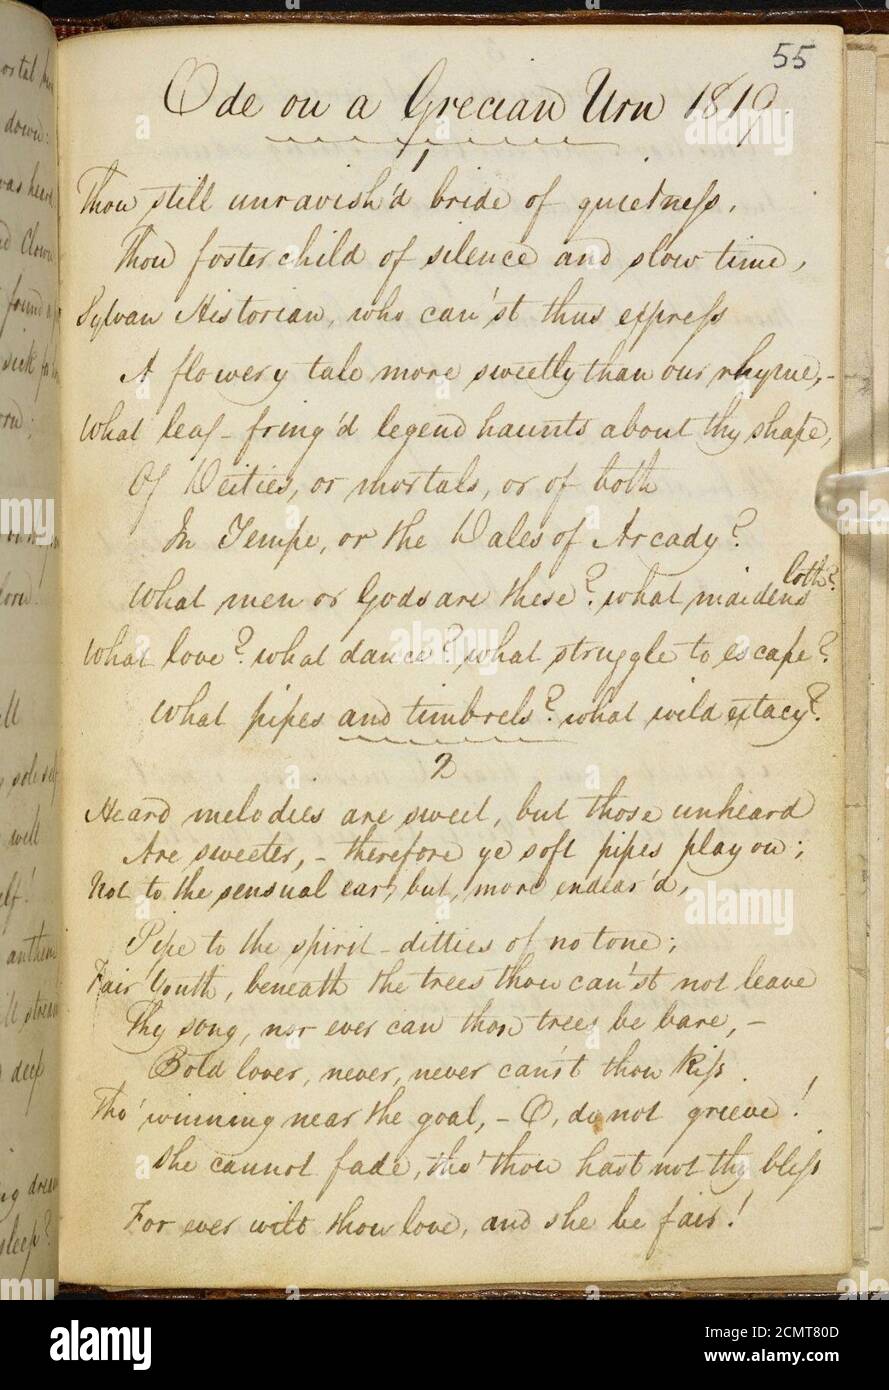 55
Ode on a Grecian Urn 1819.
1
Thou still unravish'd bride of quietness,
Thou foster child of silence and slow time,
Sylvan Historian, who can'st thus express
A flowery tale more sweetly than our rhyme,-
What leaf-fring'd legend haunts about thy shape,
Of Deities, or mortals, or of both
In Tempe, or the Dales of Arcady?
What men or Gods are these? what maidens loth?
What love? what dance? what struggle to escape?
What pipes and timbrels? what wild extacy?
2
Heard melodies are sweet, but those unheard
Are sweeter,- therefore ye soft pipes play on;
Not to the sensual ear, but, more endear'd,
Pipe to the spirit-ditties of no tone;
Fair Youth, beneath the trees thou can'st not leave
Thy song, nor ever can those trees be bare,-
Bold lover, never, never can'st thou kiss
Tho' winning near the goal,- O, do not grieve!
She cannot fade, tho' thou hast not thy bliss
For ever wilt thou love, and she be fair!
down:
was heard
Clown
found a
sick for
sole self
well
anthem
stream
deep
dream
sleep?
alamy
alamy
Image ID: 2CMT80D
www.alamy.com